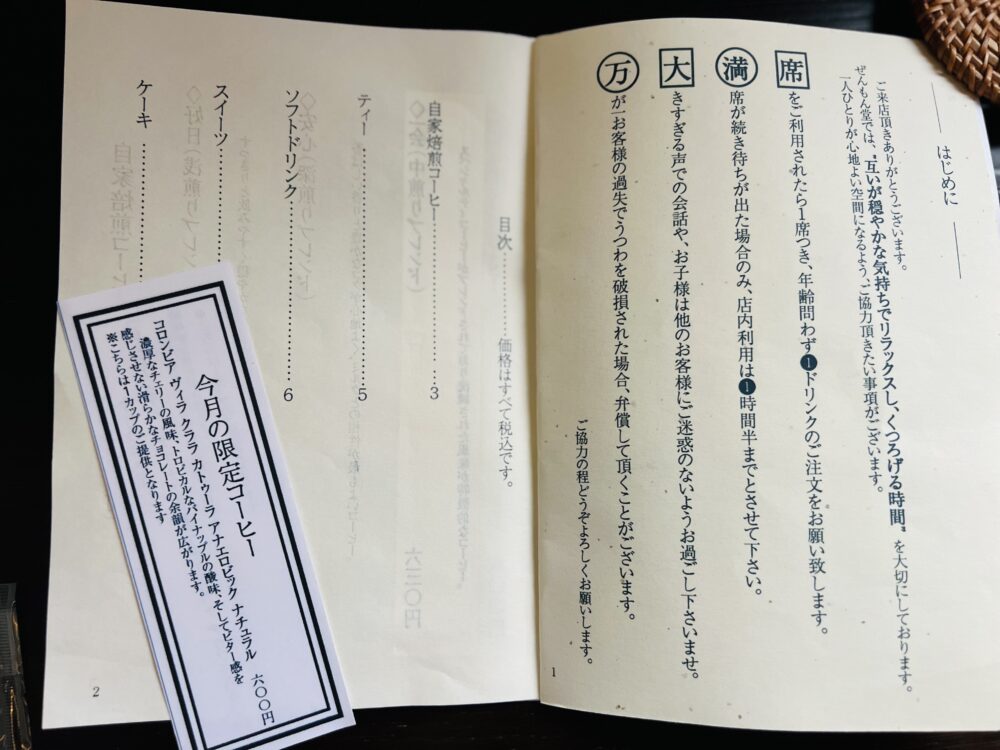 はじめに
ご来店頂きありがとうございます。
ぜんもん堂では、〝互いが穏やかな気持ちでリラックスし、くつろげる時間〟を大切にしております。
一人ひとりが心地よい空間になるよう、ご協力頂きたい事項がございます。
席をご利用されたら1席つき、年齢問わず1ドリンクのご注文をお願い致します。
満席が続き待ちが出た場合のみ、店内利用は1時間半までとさせて下さい。
大きすぎる声での会話や、お子様は他のお客様にご迷惑のないようお過ごし下さいませ。
万が一お客様の過失でうつわを破損された場合、弁償して頂くことがございます。
ご協力の程どうぞよろしくお願いします。
1
目次…………価格はすべて税込です。
自家焙煎コーヒー…………3
ティー…………5
ソフトドリンク…………6
スイーツ…………
ケーキ…………
2
今月の限定コーヒー
コロンビア ヴィラ クララ カトゥーラ アナエロビック ナチュラル 六〇〇円
濃厚なチェリーの風味、トロピカルなパイナップルの酸味、そしてビター感を
感じさせない滑らかなチョコレートの余韻が広がります。
※こちらは一カップのご提供となります